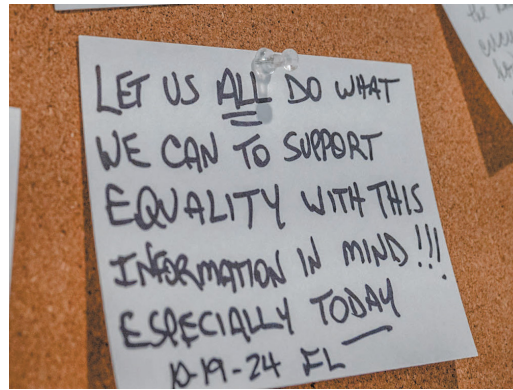 LET US ALL DO WHAT
WE CAN TO SUPPORT
EQUALITY WITH THIS
INFORMATION IN MIND!!!
ESPECIALLY TODAY
10-19-24 IL